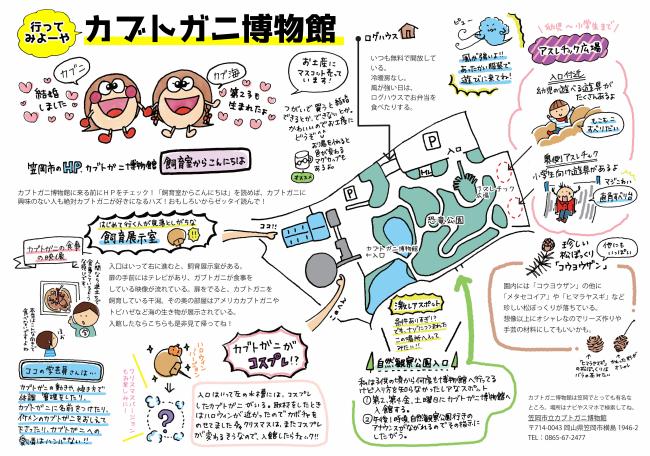 行って
みよーや
カブトガニ博物館
カブニ
カブ海
結婚
しました
第2子も
生まれたよ
お土産に
マスコット売って
います!
つがいで買うと結婚
できるとか、できないとか。
かわいいのでお土産に
どうぞ
お湯を入れると
色が変わる
マグカップも
あるよ。
オススメ
笠岡市のHP、カブトガニ博物館 飼育室からこんにちは
カブトガニ博物館に来る前にHPをチェック!「飼育室からこんにちは」を読めば、カブトガニに
興味のない人も絶対カブトガニが好きになるハズ!おもしろいからゼッタイ読んで!
ログハウス
いつも無料で開放して
いる。
冷暖房なし。
風が強い日は、
ログハウスでお弁当を
食べたりする。
ピュー
風が強いよ!!
あったかい服装で
遊びに来てね!
幼児〜小学生まで
アスレチック広場
入口付近
幼児の遊べる遊具が
たくさんあるよ
もこもこ
すべりだい
奥側アスレチック
小学生向け遊具があるよ
マジこわい
直角すべり台
珍しい
松ぼっくり
「コウヨウザン」
他にも
いっぱい
園内には「コウヨウザン」の他に
「メタセコイア」や「ヒマラヤスギ」など
珍しい松ぼっくりが落ちている。
想像以上にオシャレなのでリース作りや
手芸の材料にしてもいいかも。
P
P
入口
アスレチック
広場
恐竜公園
カブトガニ博物館
入口
ココ!!
はじめて行く人が見落としがちな
飼育展示室
カブトガニの食事
の映像
入口はいって右に進むと、飼育展示室がある。
扉の手前にはテレビがあり、カブトガニが食事を
している映像が流れている。扉をでると、カブトガニを
飼育している干潟、その奥の部屋はアメリカカブトガニや
トビハゼなど海の生き物が展示されている。
入館したならこちらも是非見て帰ってね!
ココの学芸員さんは…
クリスマスバージョン
もお楽しみに!
ハロウィン
バージョン
カブトガニが
コスプレ!?
激レアスポット
自然観察公園入口
私は子供の頃から何度も博物館へ行ってる
けど入り方を知らなかったレアなスポット
①第2、第4金、土曜日にカブトガニ博物館へ
入館する。
②午後1時頃、自然観察公園行きの
アナウンスがながれるのでその指示に
したがう。
カブトガニ博物館は笠岡でとっても有名な
ところ。場所はナビやスマホで検索してね。
笠岡市立カブトガニ博物館
〒714-0043 岡山県笠岡市横島 1946-2
TEL:0865-67-2477